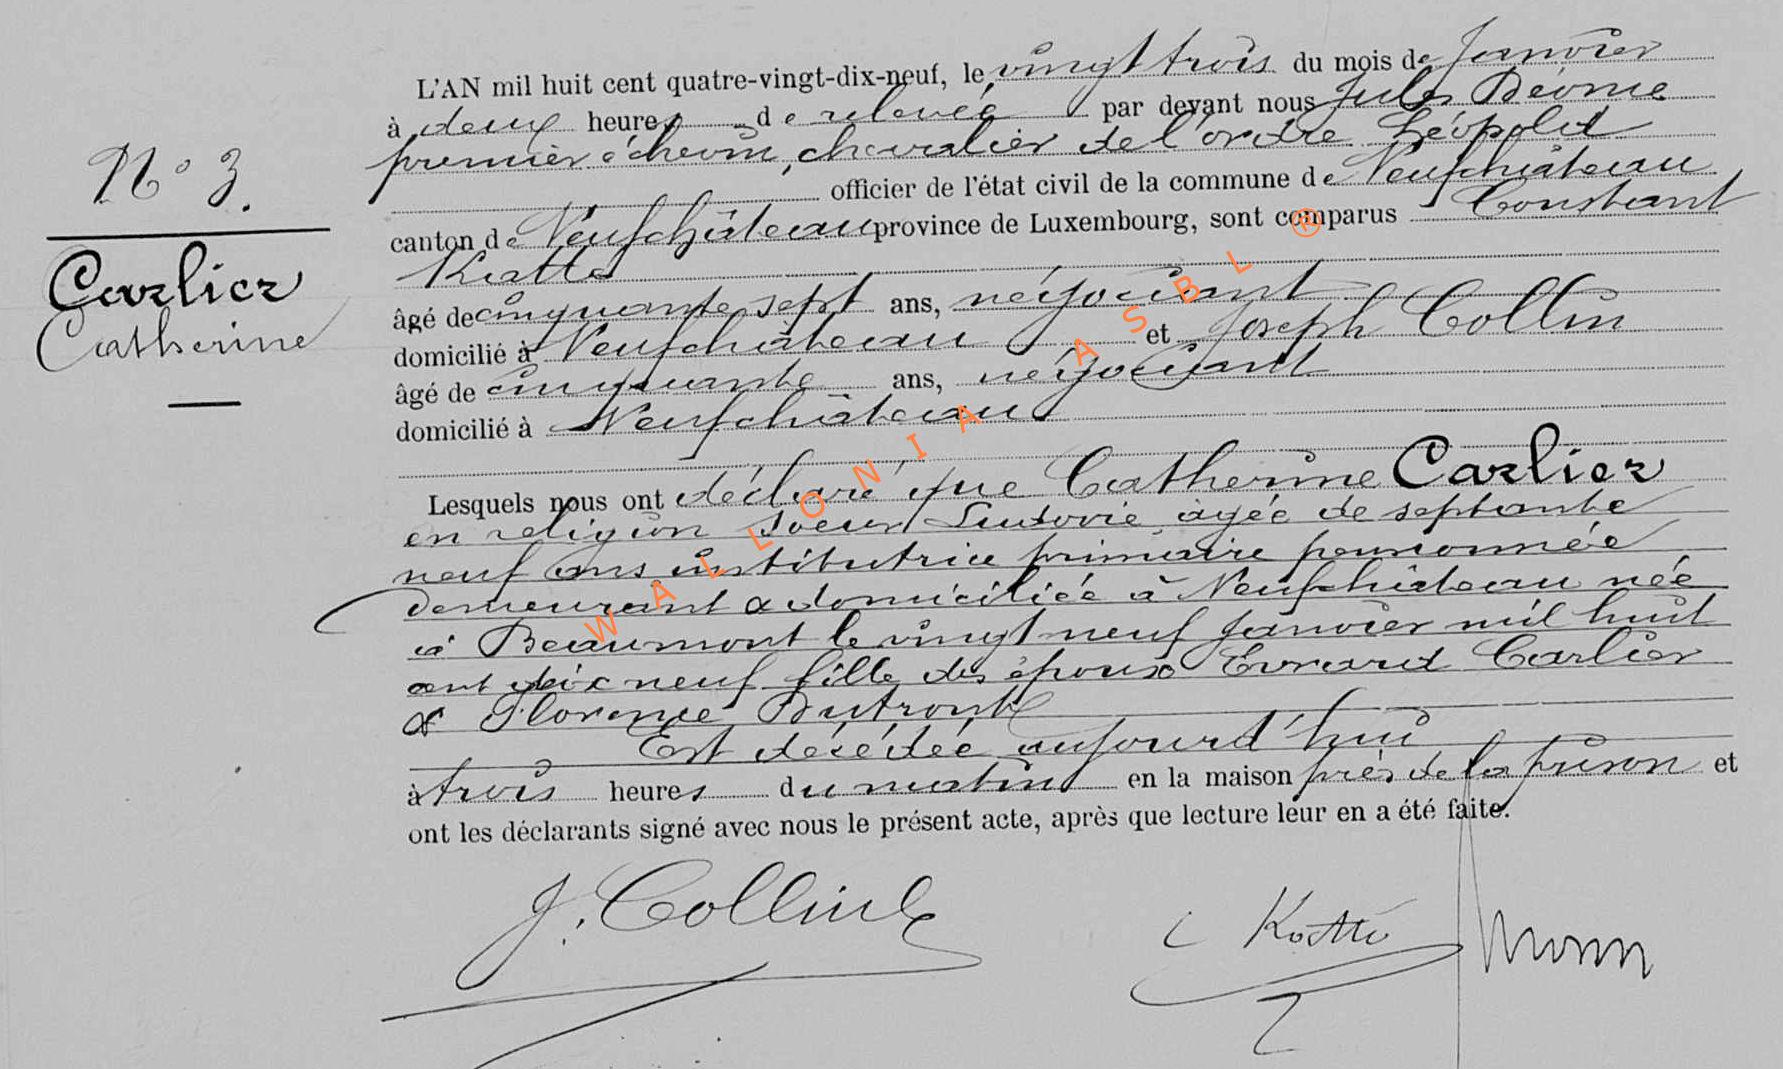 N° 3.
Carlier
Catherine
L'AN mil huit cent quatre-vingt-dix-neuf, le vingt trois du mois de Janvier
à deux heures de relevée par devant nous Jules
premier échevin, chevalier de l'ordre Léopold
officier de l'état civil de la commune de Neufchâteau
canton de Neufchâteau province de Luxembourg, sont comparus Constant
âgé de cinquante sept ans, négociant
domicilié à Neufchâteau et Joseph Collin
âgé de cinquante ans, négociant
domicilié à Neufchâteau
Lesquels nous ont déclaré que Catherine Carlier
en religion soeur Ludovie âgée de septante
neuf ans institutrice primaire pensionnée
demeurant & domiciliée à Neufchâteau née
à Beaumont le vingt neuf Janvier mil huit
cent dix neuf fille des époux Evrard Carlier
& Florence
Est décédée aujourd'hui
à trois heures du matin en la maison près de la prison et
ont les déclarants signé avec nous le présent acte, après que lecture leur en a été faite.
J. Collin
WALLONIA ASBL ®